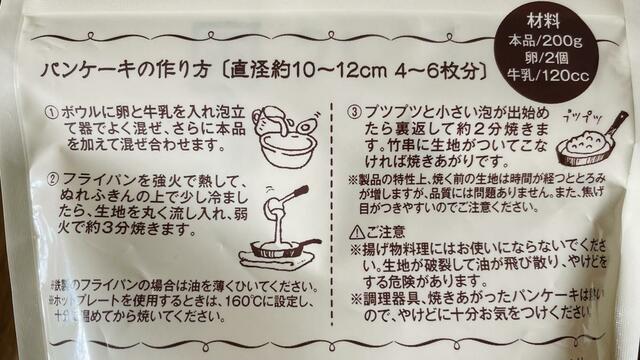 材料
本品/200g
卵/2個
牛乳/120cc
パンケーキの作り方〔直径約10〜12cm 4〜6枚分〕
①ボウルに卵と牛乳を入れ泡立
て器でよく混ぜ、さらに本品
を加えて混ぜ合わせます。
②フライパンを強火で熱して、
ぬれふきんの上で少し冷まし
たら、生地を丸く流し入れ、弱
火で約3分焼きます。
※鉄製のフライパンの場合は油を薄くひいてください。
※ホットプレートを使用するときは、160℃に設定し、
十分温めてから焼いてください。
③プツプツと小さい泡が出始め
たら裏返して約2分焼きま
す。竹串に生地がついてこな
ければ焼きあがりです。
プツプツ
※製品の特性上、焼く前の生地は時間が経つととろみ
が増しますが、品質には問題ありません。また、焦げ
目がつきやすいのでご注意ください。
⚠ご注意
※揚げ物料理にはお使いにならないでくださ
い。生地が破裂して油が飛び散り、やけどを
する危険があります。
※調理器具、焼きあがったパンケーキは熱い
ので、やけどに十分お気をつけください。